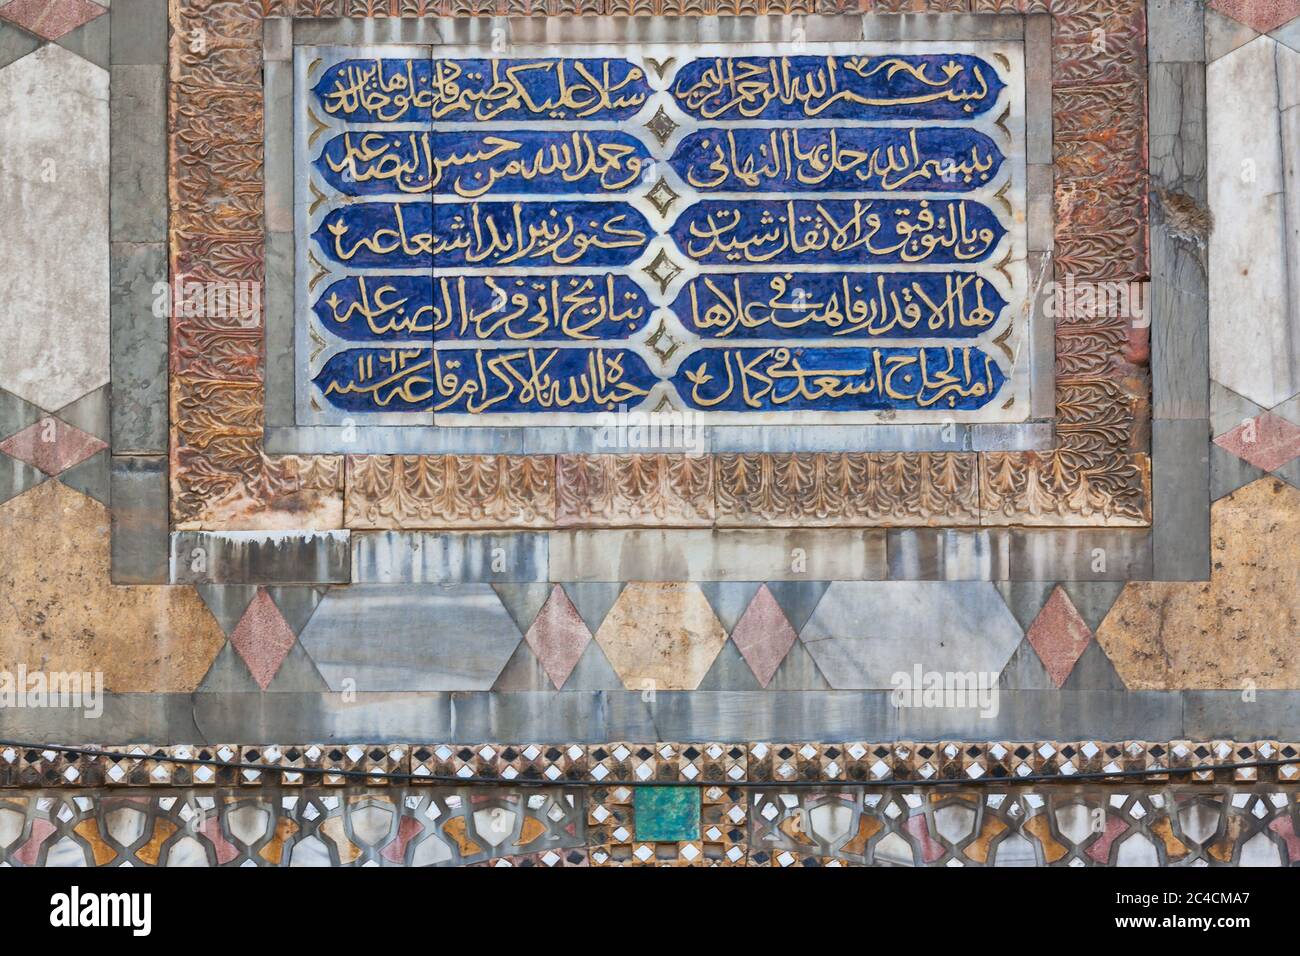 بسم الله الرحمن الرحيم سلام عليكم طبتم فادخلوها خالدين
ببسم الله جل بها التهاني وحمد الله من حسن البضاعه
وبالتوفيق والاتقان شيدت كنور نير ابدا شعاعه
لها الاقدار فاهت في علاها بتاريخ اتى فرد الصناعه
امير الحاج اسعد في كمال حباه الله بالاكرام قاعه سنه ١١٦٣
alamy
alamy
Image ID: 2C4CMA7
www.alamy.com